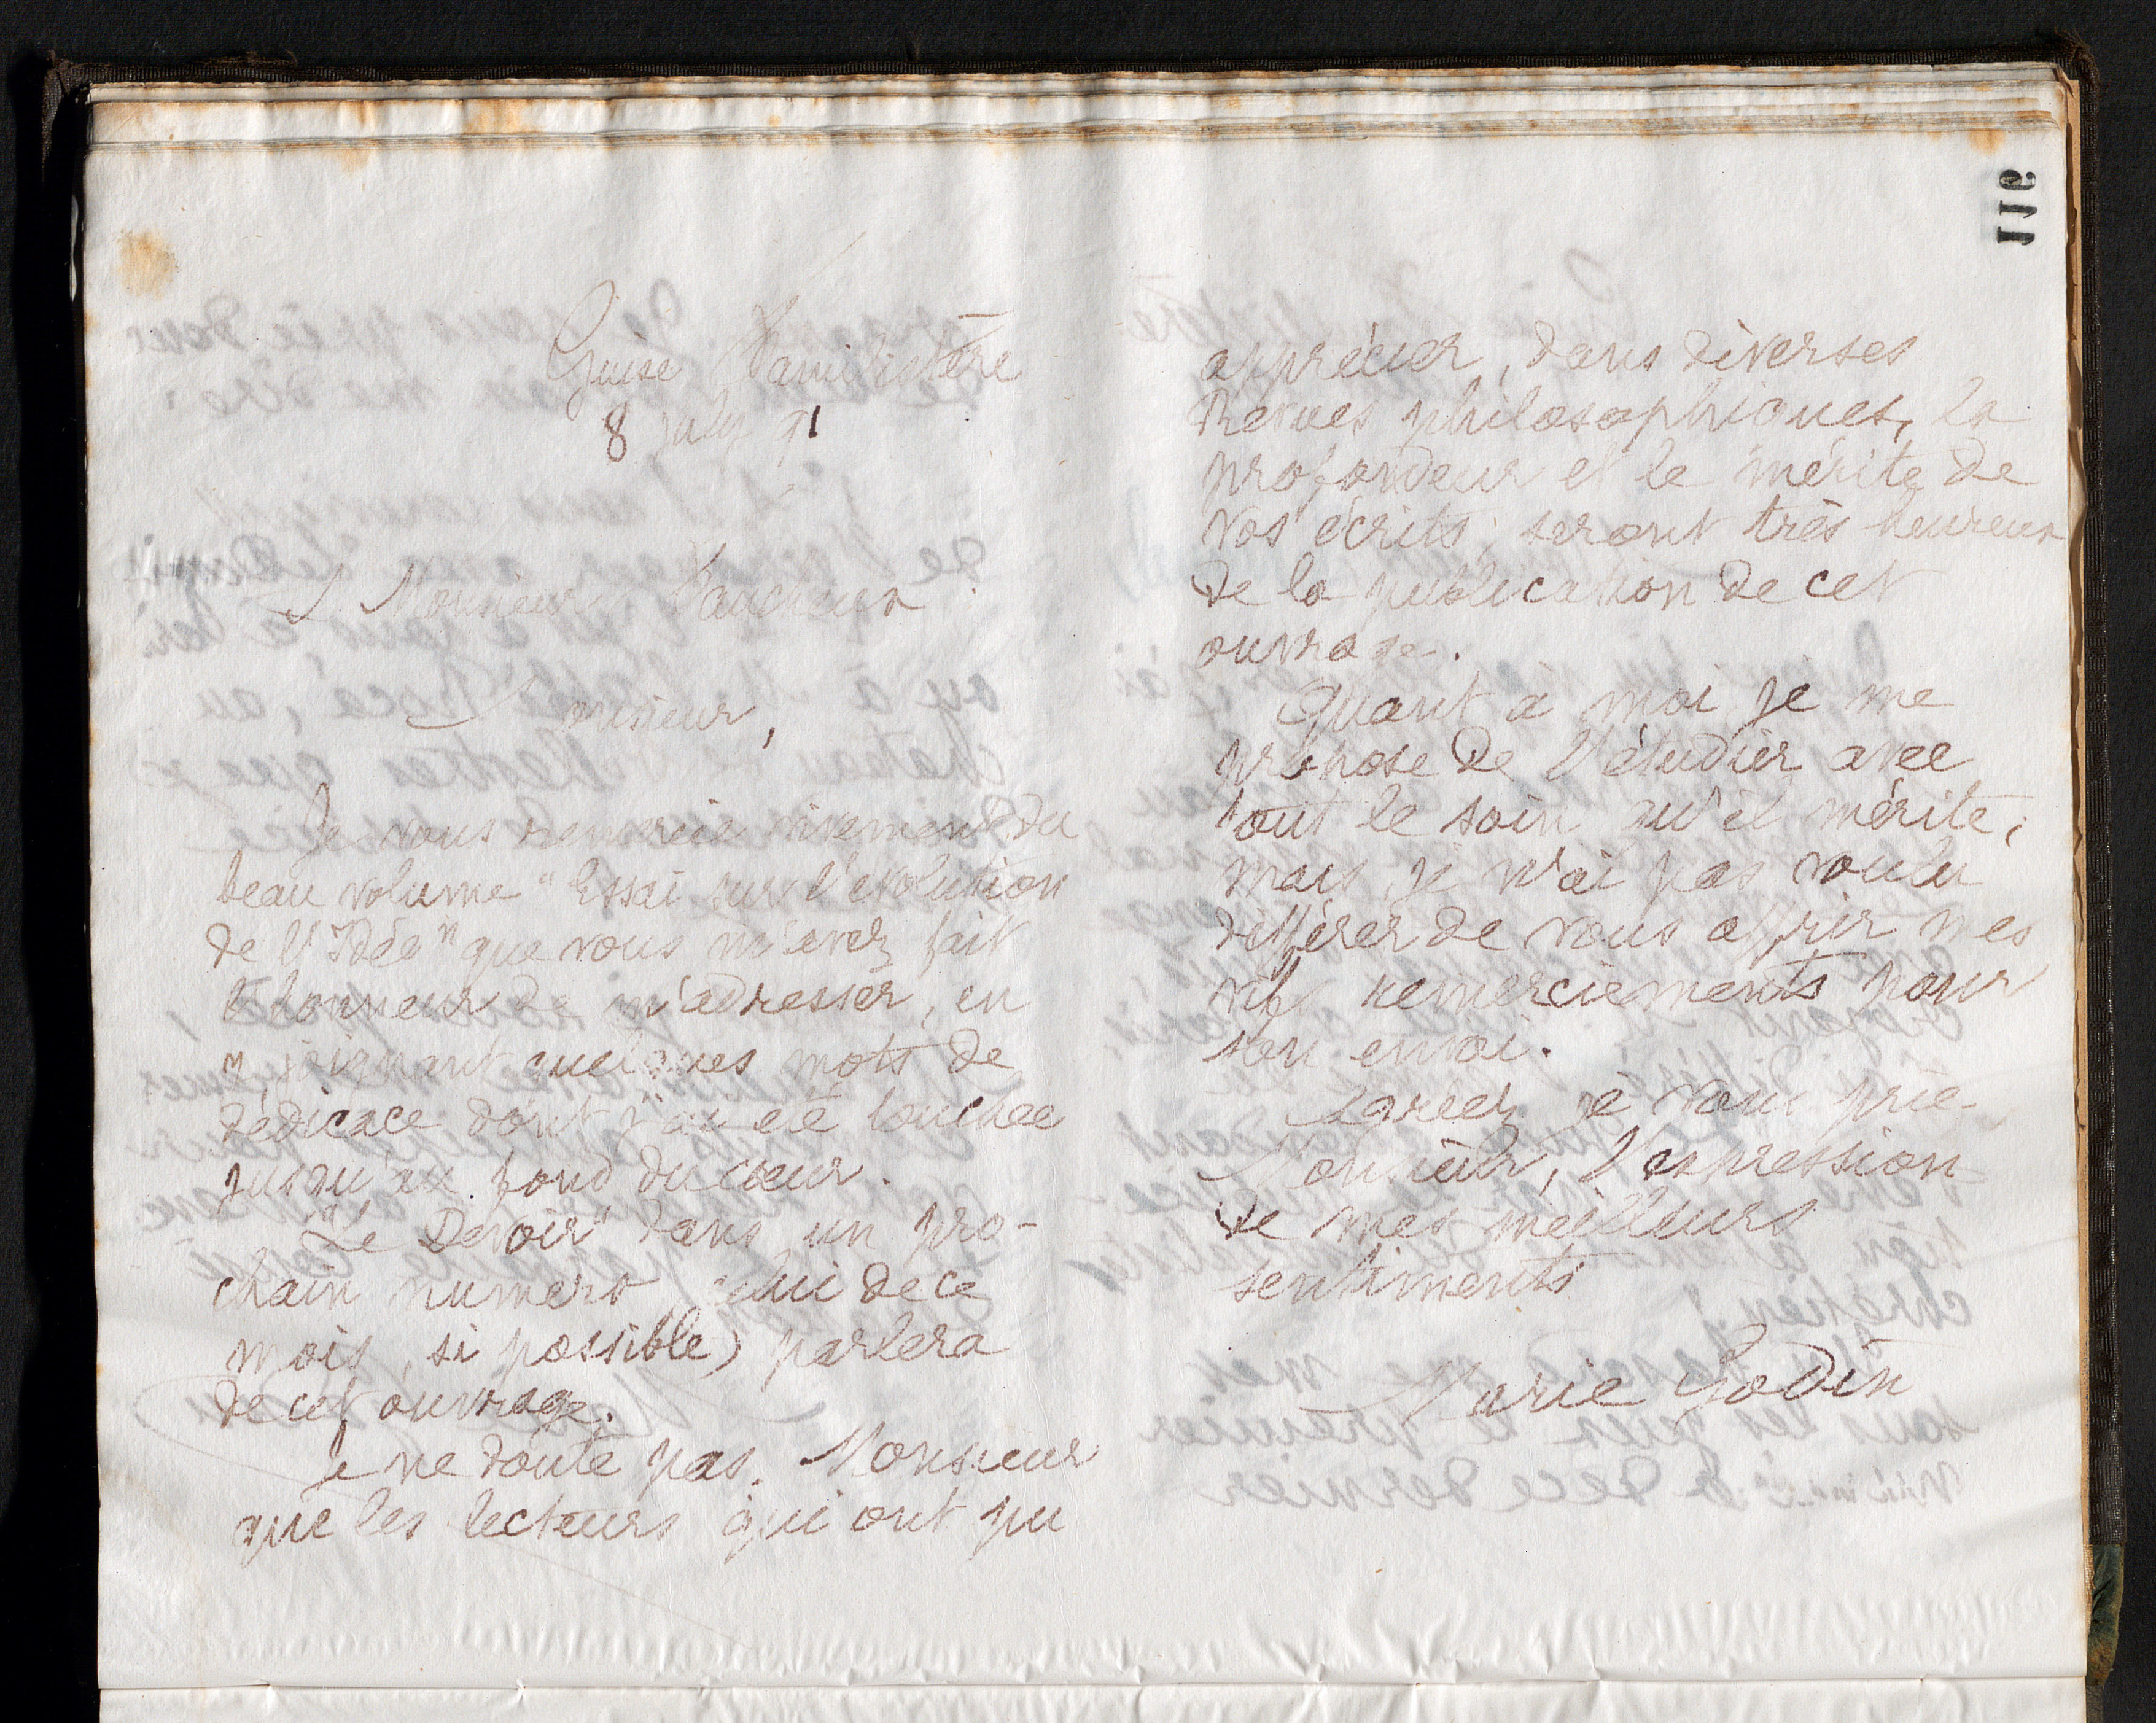 116
Guise Familistère
8 july 91
Monsieur
Monsieur,
Je vous remercie vivement du
beau volume "Essai sur l'evolution
de l'Idée" que vous m'avez fait
l'honneur de m'adresser, en
y joignant quelques mots de
dédicace dont j'ai été touchée
jusqu'au fond du cœur.
"Le Devoir" dans un pro-
chain numéro (celui de ce
mois, si possible) parlera
de cet ouvrage.
Je ne doute pas, Monsieur
que les lecteurs qui ont pu
apprécier, dans diverses
Revues philosophiques, la
profondeur et le mérite de
vos écrits, seront très heureux
de la publication de cet
ouvrage.
Quant à moi je me
propose de l'étudier avec
tout le soin qu'il mérite;
mais, je n'ai pas voulu
différer de vous offrir mes
vifs remerciements pour
son envoi.
Agréez je vous prie
Monsieur, l'expression
de mes meilleurs
sentiments
Marie Godin